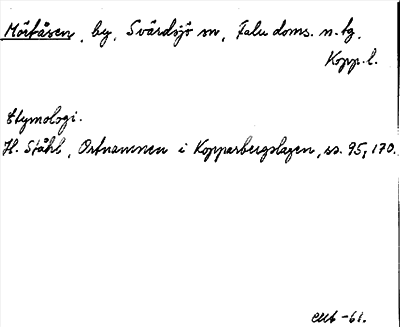 Mörtåsen, by, Svärdsjö sn, Falu doms. n. tg.
Kopp. l.
Etymologi.
H. Ståhl, Ortnamnen i Kopparbergslagen, ss. 95, 170.
-61.